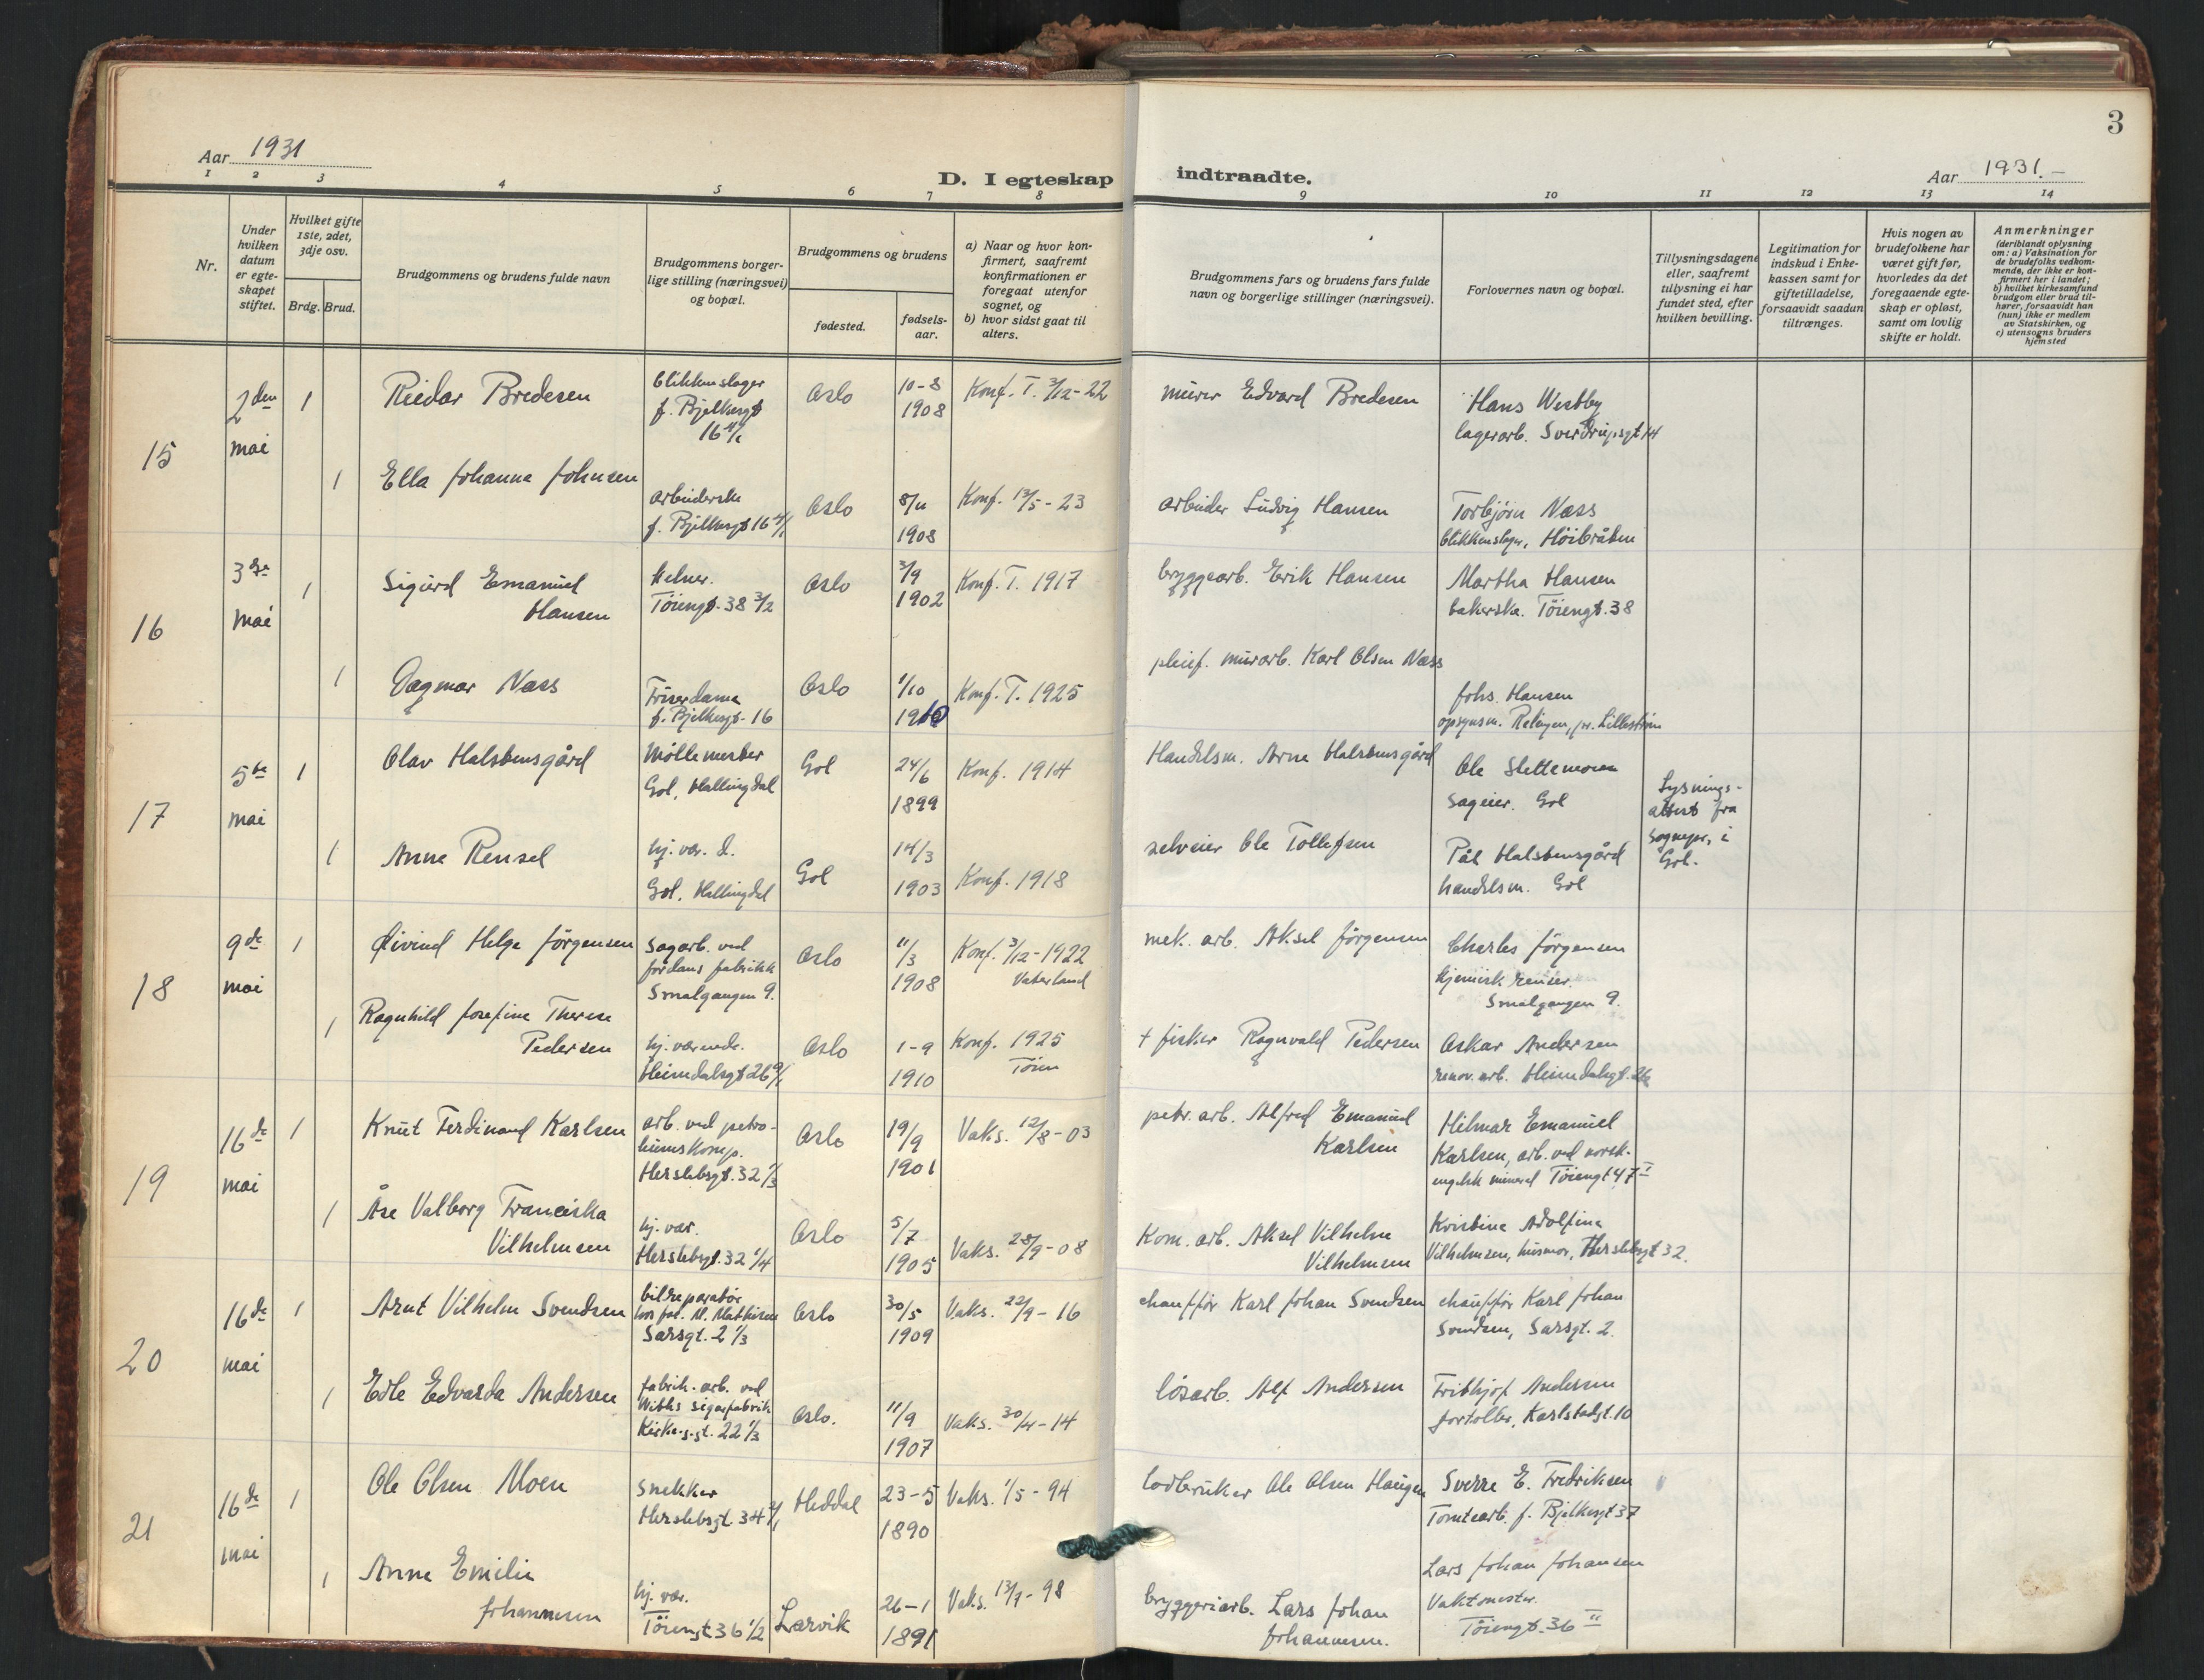 3
Aar 1931
D. I egteskap
indtraadte.
Aar 1931.-
1 2 3 4 5 6 7 8 9 10 11 12 13 14
Nr.
Under hvilken datum er egteskapet stiftet.
Hvilket gifte 1ste, 2det, 3dje osv.
Brdg. Brud.
Brudgommens og brudens fulde navn
Brudgommens borgerlige stilling (næringsvei) og bopæl.
Brudgommens og brudens
fødested.
fødselsaar.
a) Naar og hvor konfirmert, saafremt konfirmationen er foregaat utenfor sognet, og
b) hvor sidst gaat til alters.
Brudgommens fars og brudens fars fulde navn og borgerlige stillinger (næringsvei).
Forlovernes navn og bopæl.
Tillysningsdagene eller, saafremt tillysning ei har fundet sted, efter hvilken bevilling.
Legitimation for indskud i Enkekassen samt for giftetilladelse, forsaavidt saadan tiltrænges.
Hvis nogen av brudefolkene har været gift før, hvorledes da det foregaaende egteskap er opløst, samt om lovlig skifte er holdt.
Anmerkninger
(deriblandt oplysning om: a) Vaksination for de brudefolks vedkommende, der ikke er konfirmert her i landet; b) hvilket kirkesamfund brudgom eller brud tilhører, forsaavidt han (hun) ikke er medlem av Statskirken, og c) utensogns bruders hjemsted
15
2den mai
1
Riedar Bredesen
blikkenslager
f. Bjelkesgt
16 4/1
Oslo
10-8
1908
Konf. T. 3/12-22
murer Edvard Bredesen
Hans Westby
lagerarb. Sverdrupsgt 14
1
Ella Johanne Johnsen
arbeiderske
f. Bjelkesgt 16 4/1
Oslo
8/11
1908
Konf. 13/5-23
arbeider Ludvig Hansen
Torbjørn Næss
blikkenslager, Höibråten
16
3die mai
1
Sigurd Emanuel
Hansen
kelner.
Töiengt. 38 3/2
Oslo
3/9
1902
Konf. T. 1917
bryggearb. Erik Hansen
Martha Hansen
bakerske. Töiengt. 38
1
Dagmar Næss
Friserdame
f. Bjelkesgt- 16
Oslo
1/10
1910
Konf. T. 1925
pleief. murarb. Karl Olsen Næss
Johs. Hansen
opsynsm. Relingen, pr. Lilleström
17
5te mai
1
Olav Halstensgård
Møllemester
Gol, Hallingdal
Gol
24/6
1899
Konf. 1914
Handelsm. Arne Halstensgård
Ole Slettemoen
Sageier. Gol
Lysnings-
attest fra
sognepr. i
Gol.
1
Anne Rensel
hj. vær. d.
Gol. Hallingdal
Gol
14/3
1903
Konf. 1918
selveier Ole Tollefsen
Pål Halstensgård
handelsm. Gol
18
9de mai
1
Øivind Helge Jörgensen
Sagarb. ved
Jordans fabrikk
Smalgangen 9.
Oslo
11/3
1908
Konf. 3/12-1922
Vaterland
mek. arb. Aksel Jörgensen
Charles Jörgensen
kjemisk renser.
Smalgangen 9.
1
Ragnhild Josefine Therese
Pedersen
hj. værende.
Heimdalsgt 26 9/1
Oslo
1-9
1910
Konf. 1925
Töien
+ fisker Ragnvald Pedersen
Oskar Andersen
renov. arb. Heimdalsgt. 26
19
16de mai
1
Knut Ferdinand Karlsen
arb. ved petro-
leumskomp.
Herslebsgt. 32 1/3
Oslo
19/9
1901
Vaks. 12/8-03
petr. arb. Alfred Emanuel
Karlsen
Hilmar Emanuel
Karlsen, arb. ved norsk-
engelsk mineral Töiengt 47 I
1
Åse Valborg Franciska
Vilhelmsen
hj. vær.
Herslebsgt. 32 1/4
Oslo
5/7
1905
Vaks. 28/9-08
Kom. arb. Aksel Vilhelm
Vilhelmsen
Kristine Adolfine
Vilhelmsen, husmor, Herslebsgt 32.
20
16de mai
1
Arnt Vilhelm Svendsen
bilreparatör
M. Mathisen
Sarsgt. 2 1/3
Oslo
30/5
1909
Vaks. 22/9-16
chauffør Karl Johan Svendsen
chauffør Karl Johan
Svendsen, Sarsgt. 2.
1
Edle Edvarda Andersen
fabrik. arb. ved
Withs sigarfabrik
Kirkeg.gt. 22 1/3
Oslo.
11/9
1907
Vaks. 30/4-14
løsarb. Alf Andersen
Frithjof Andersen
fortoller, Karlstadgt. 10
21
16de mai
1
Ole Olsen Moen
Snekker
Herslebsgt. 34
Heddal
23-5
1890
Vaks. 1/5-94
lodbruker Ole Olsen Haugen
Sverre E. Fredriksen
Tomtearb. f. Bjelkesgt 37
1
Anne Emilie
Johannesen
hj. vær.
Töiengt 36 1/2
Larvik
26-1
1891
Vaks. 13/7-98
bryggeriarb. Lars Johan
Johannesen.
Lars Johan Johansen
Vaktmester.
Töiengt. 36 II